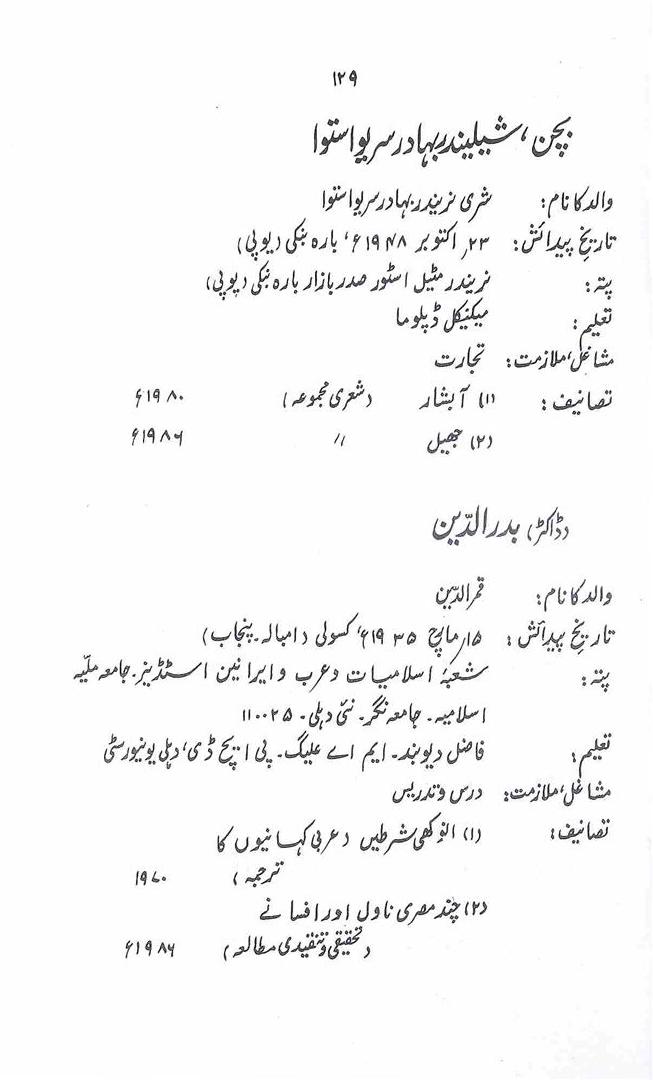 ۱۲۹
بچن، شیلیندر بہادر سریواستوا
والد کا نام: شری نریندر بہادر سریواستوا
تاریخ پیدائش: ۲۳؍ اکتوبر ۱۹۴۸ء، بارہ بنکی (یوپی)
پتہ: نریندر مٹیل اسٹور صدر بازار بارہ بنکی (یوپی)
تعلیم: میکنیکل ڈپلوما
مشاغل، ملازمت: تجارت
تصانیف: (۱) آبشار (شعری مجموعہ) ۱۹۸۰ء
(۲) جھیل // ۱۹۸۶ء
(ڈاکٹر) بدر الدّین
والد کا نام: قمر الدّین
تاریخ پیدائش: ۱۵؍ مارچ ۱۹۳۵ء، کسولی (امبالہ۔ پنجاب)
پتہ: شعبۂ اسلامیات و عرب و ایرانین اسٹڈیز۔ جامعہ ملّیہ
اسلامیہ۔ جامعہ نگر۔ نئی دہلی۔ ۱۱۰۰۲۵
تعلیم: فاضل دیوبند۔ ایم اے علیگ۔ پی ایچ ڈی، دہلی یونیورسٹی
مشاغل، ملازمت: درس و تدریس
تصانیف: (۱) انوکھی شرطیں (عربی کہانیوں کا
ترجمہ) ۱۹۷۰
(۲) چند مصری ناول اور افسانے
(تحقیقی و تنقیدی مطالعہ) ۱۹۸۶ء